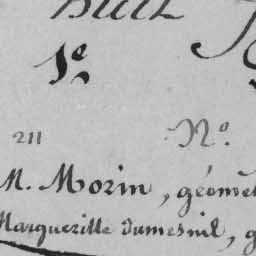 huit
1e.
211 No.
M. Morin, géomèt
Marguerille Dumesnil, g